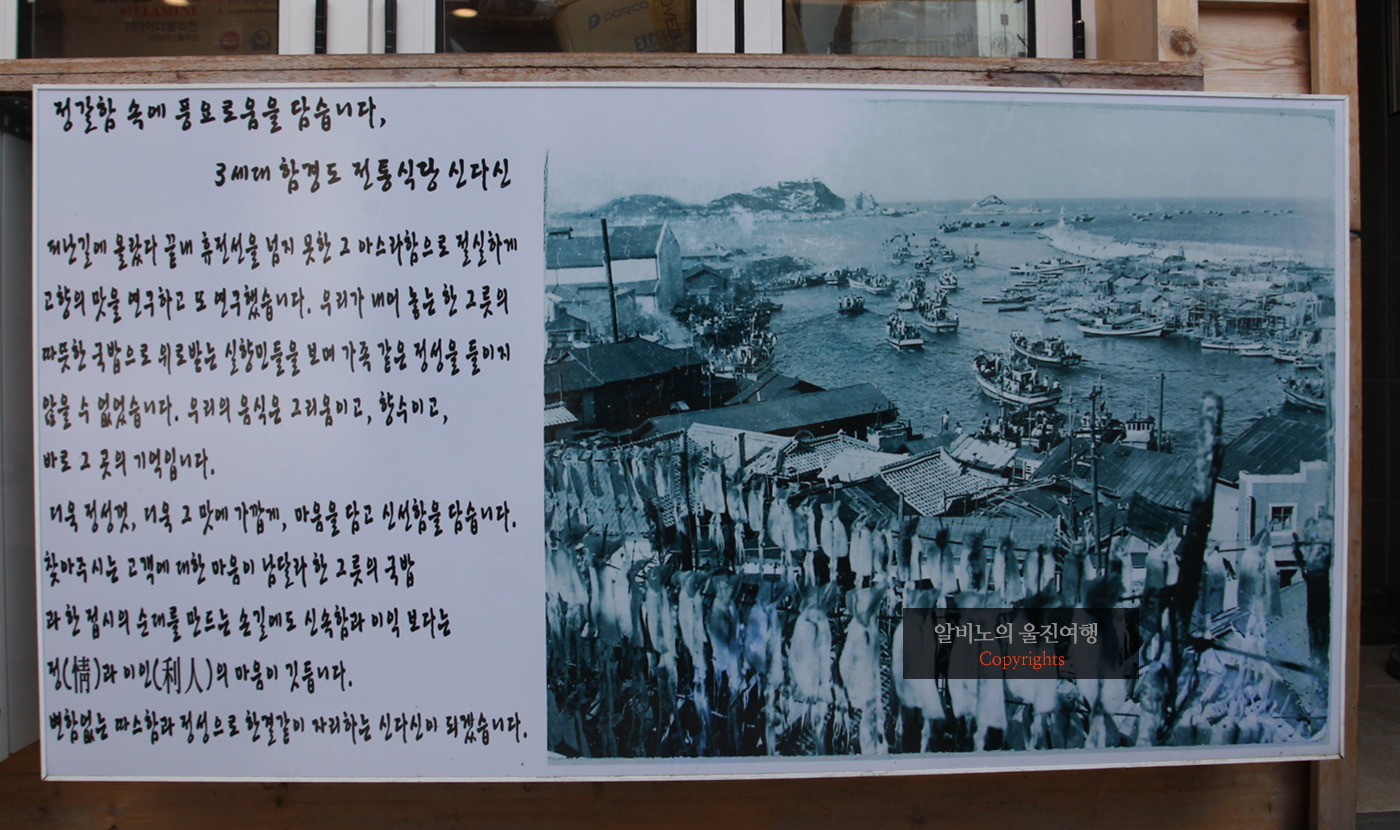 DORCO
EXCEL
정갈함 속에 풍요로움을 담습니다,
3세대 함경도 전통식당 신다신
피난길에 올랐다 끝내 휴전선을 넘지 못한 그 아스라함으로 절실하게
고향의 맛을 연구하고 또 연구했습니다. 우리가 내어 놓는 한 그릇의
따뜻한 국밥으로 위로받는 실향민들을 보며 가족 같은 정성을 들이지
않을 수 없었습니다. 우리의 음식은 그리움이고, 향수이고,
바로 그 곳의 기억입니다.
더욱 정성껏, 더욱 그 맛에 가깝게, 마음을 담고 신선함을 담습니다.
찾아주시는 고객에 대한 마음이 남달라 한 그릇의 국밥
과 한 접시의 순대를 만드는 손길에도 신속함과 이익 보다는
정(情)과 이인(利人)의 마음이 깃듭니다.
변함없는 따스함과 정성으로 한결같이 자리하는 신다신이 되겠습니다.
알비노의 울진여행
Copyrights